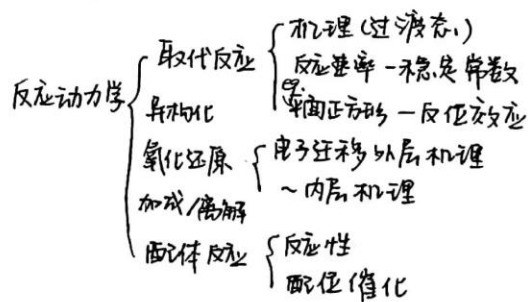 反应动力学
取代反应
机理(过渡态)
反应速率-不稳定常数
平面正方形-反位效应
异构化
氧化还原
电子迁移外层机理
~内层机理
加成/离解
配体反应
反应性
配位催化